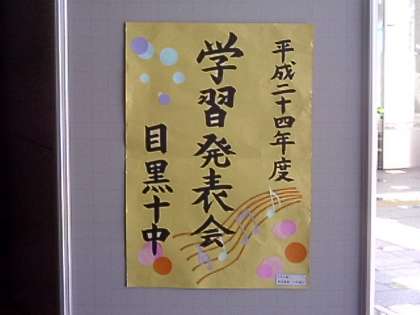 平成二十四年度
学習発表会
目黒十中